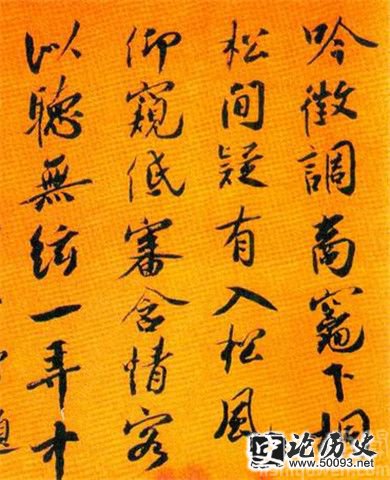 吟徵調商竈下桐
松間疑有入松風
仰窺低審含情客
以聽無絃一弄中
论历史
www.50093.net